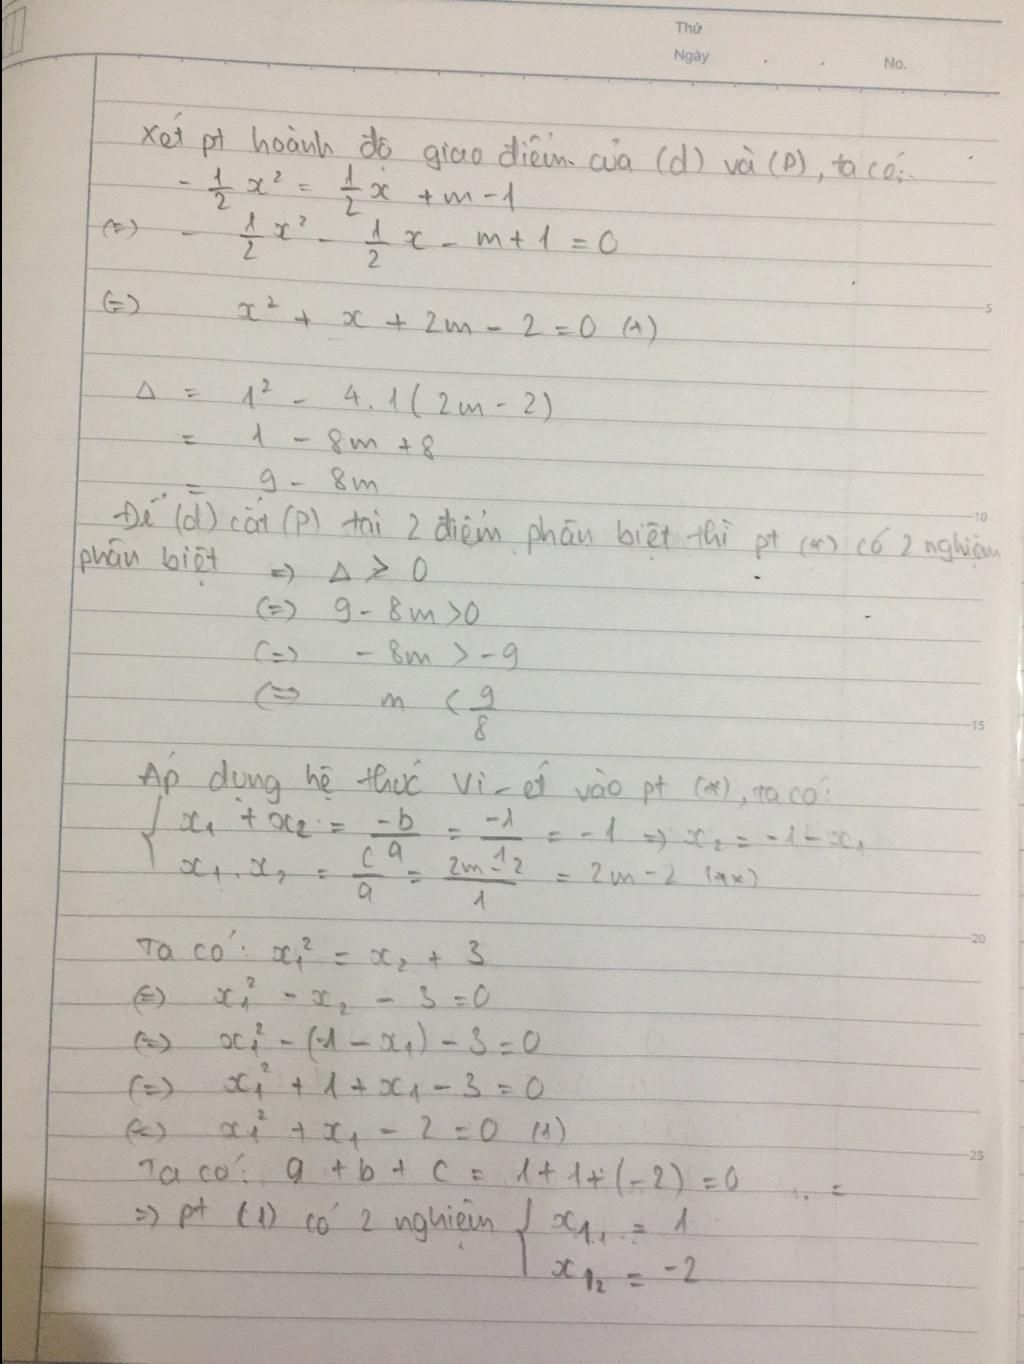 Thứ
Ngày
No.
Xét pt hoành độ giao điểm của (d) và (P), ta có:
- 1/2 x² = 1/2 x + m - 1
(=) - 1/2 x² - 1/2 x - m + 1 = 0
(=) x² + x + 2m - 2 = 0 (*)
5
Δ = 1² - 4.1(2m - 2)
= 1 - 8m + 8
= 9 - 8m
10
Để (d) cắt (P) tại 2 điểm phân biệt thì pt (*) có 2 nghiệm
phân biệt => Δ > 0
(=) 9 - 8m > 0
(=) - 8m > - 9
(=) m < 9/8
15
Áp dụng hệ thức Vi-ét vào pt (*), ta có:
{ x₁ + x₂ = -b/a = -1/1 = -1 => x₂ = -1 - x₁
x₁ . x₂ = c/a = 2m - 2/1 = 2m - 2 (**)
20
Ta có: x₁² = x₂ + 3
(=) x₁² - x₂ - 3 = 0
(=) x₁² - (-1 - x₁) - 3 = 0
(=) x₁² + 1 + x₁ - 3 = 0
(=) x₁² + x₁ - 2 = 0 (1)
25
Ta có: a + b + c = 1 + 1 + (-2) = 0
=> pt (1) có 2 nghiệm { x₁₁ = 1
x₁₂ = -2